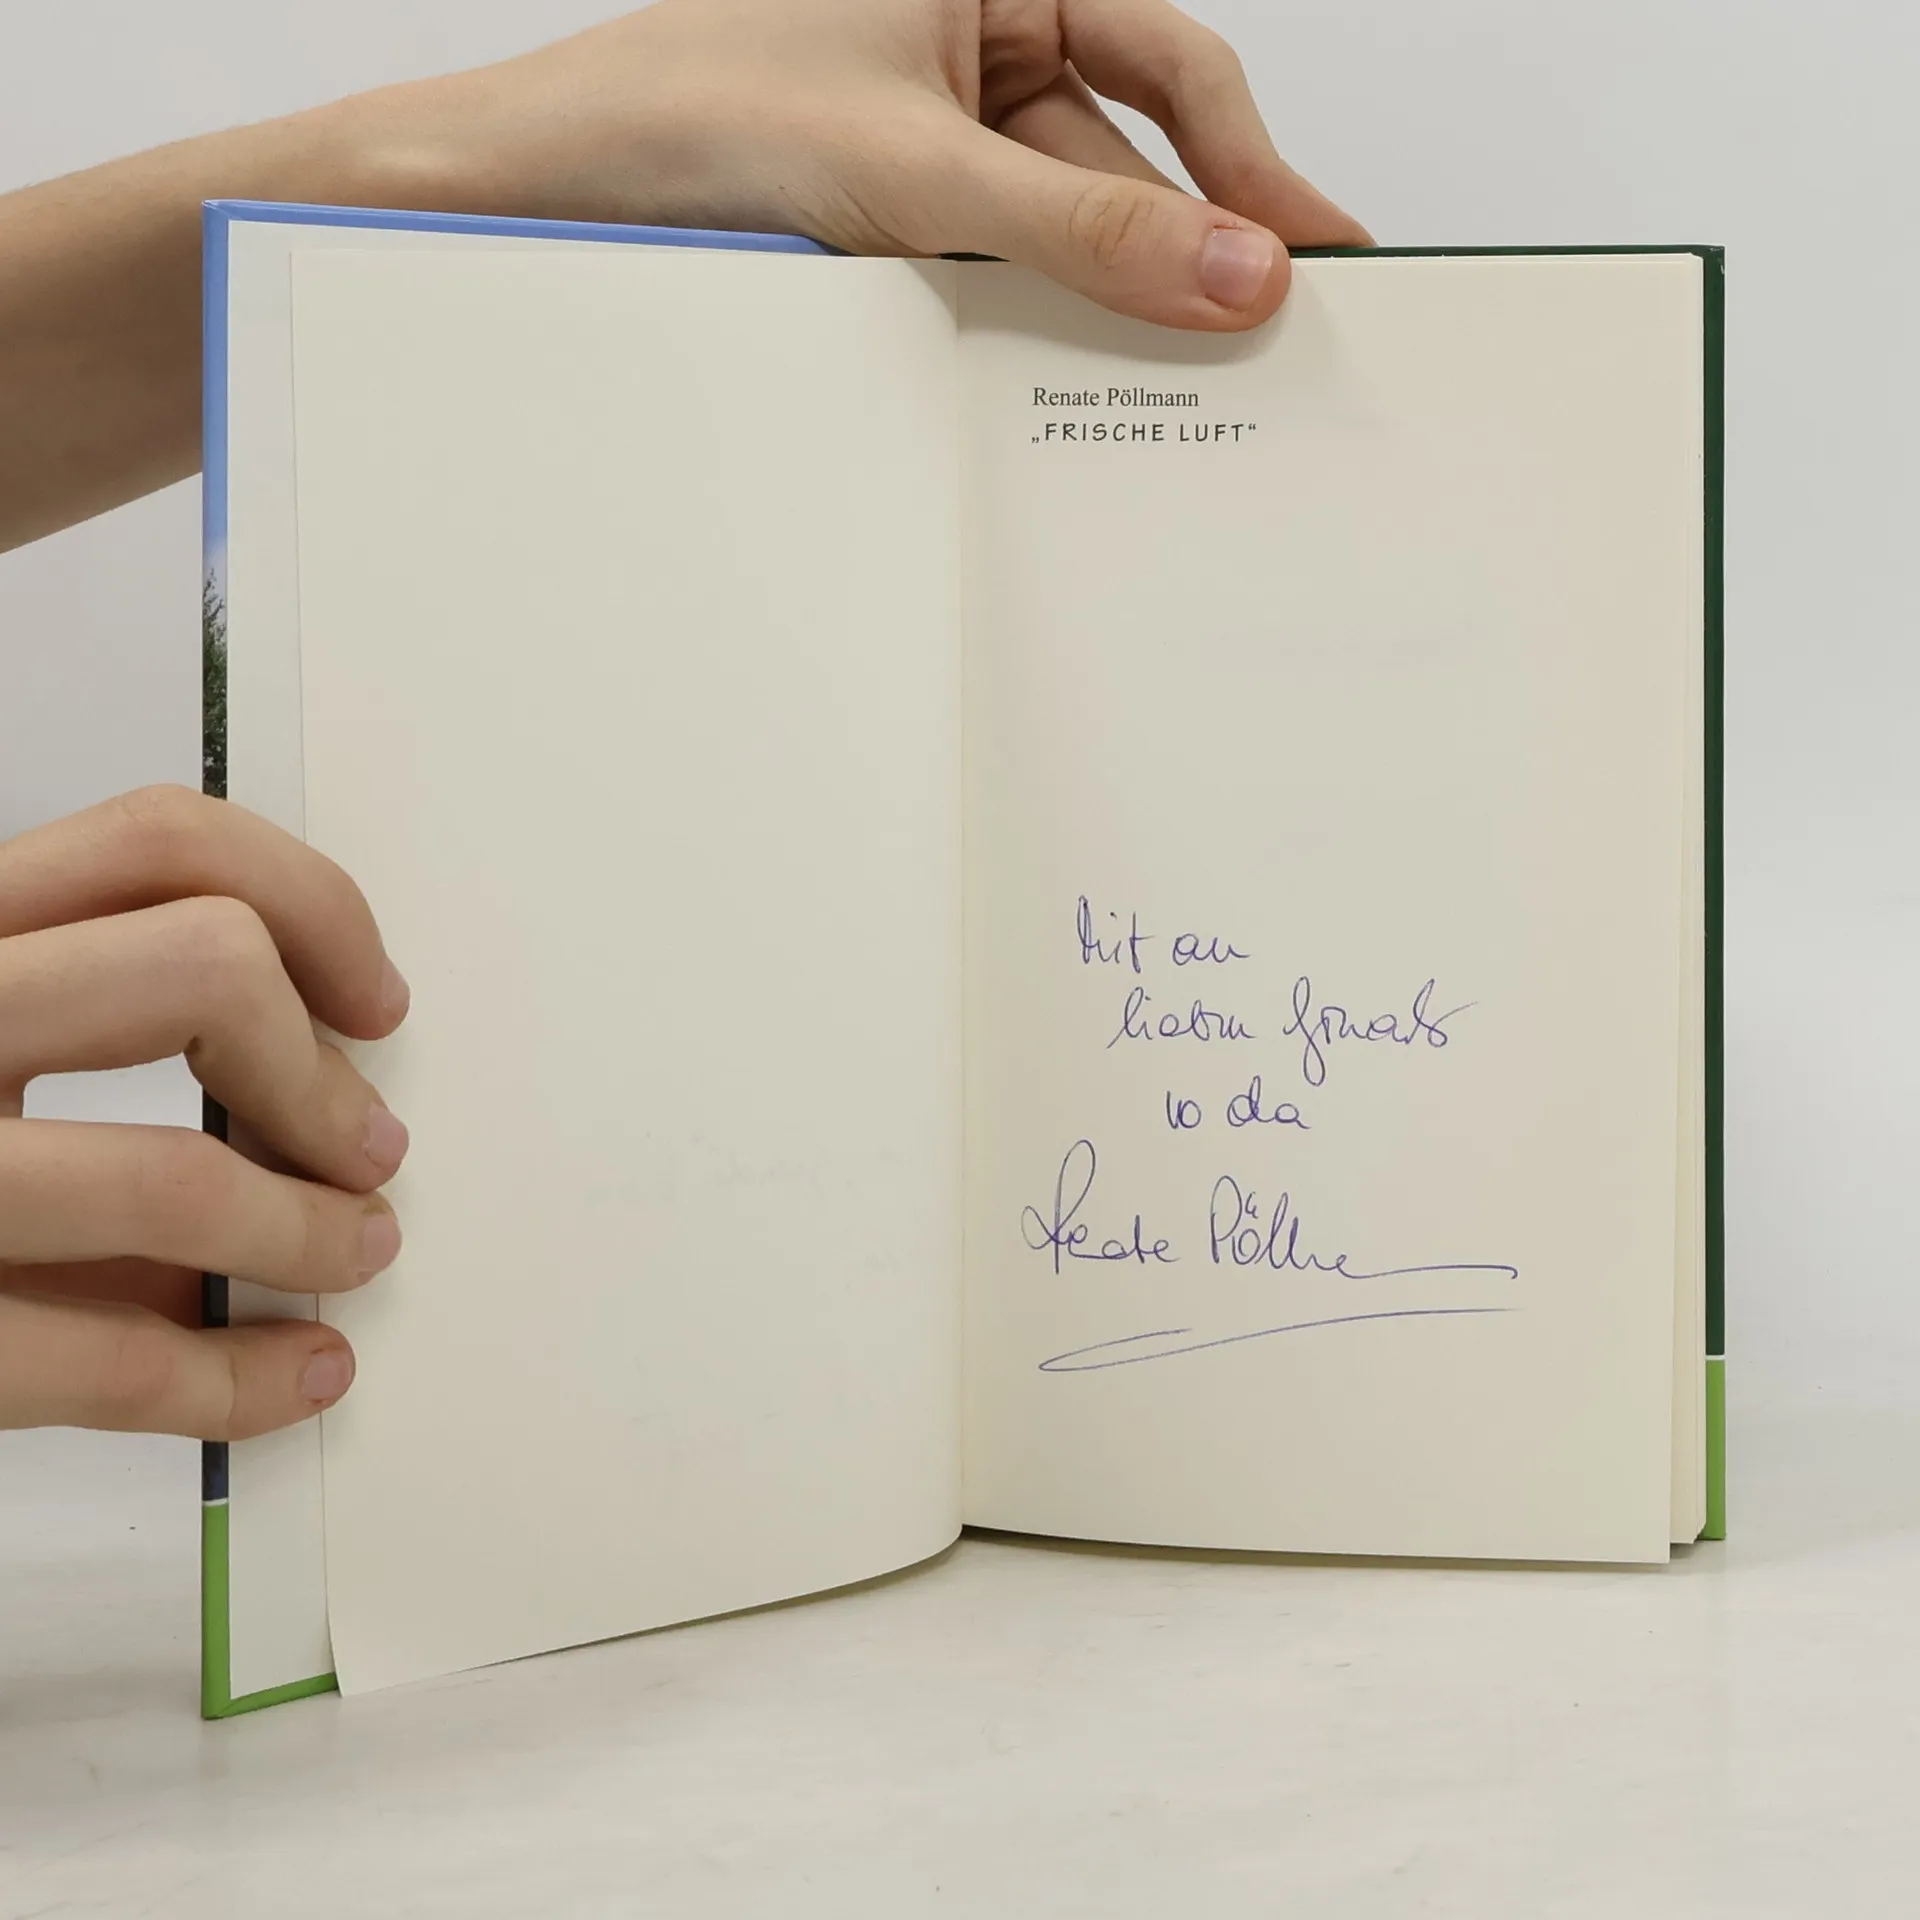 Renate Pöllmann
„FRISCHE LUFT“
Mit an
liabm
da
Renate Pöllma